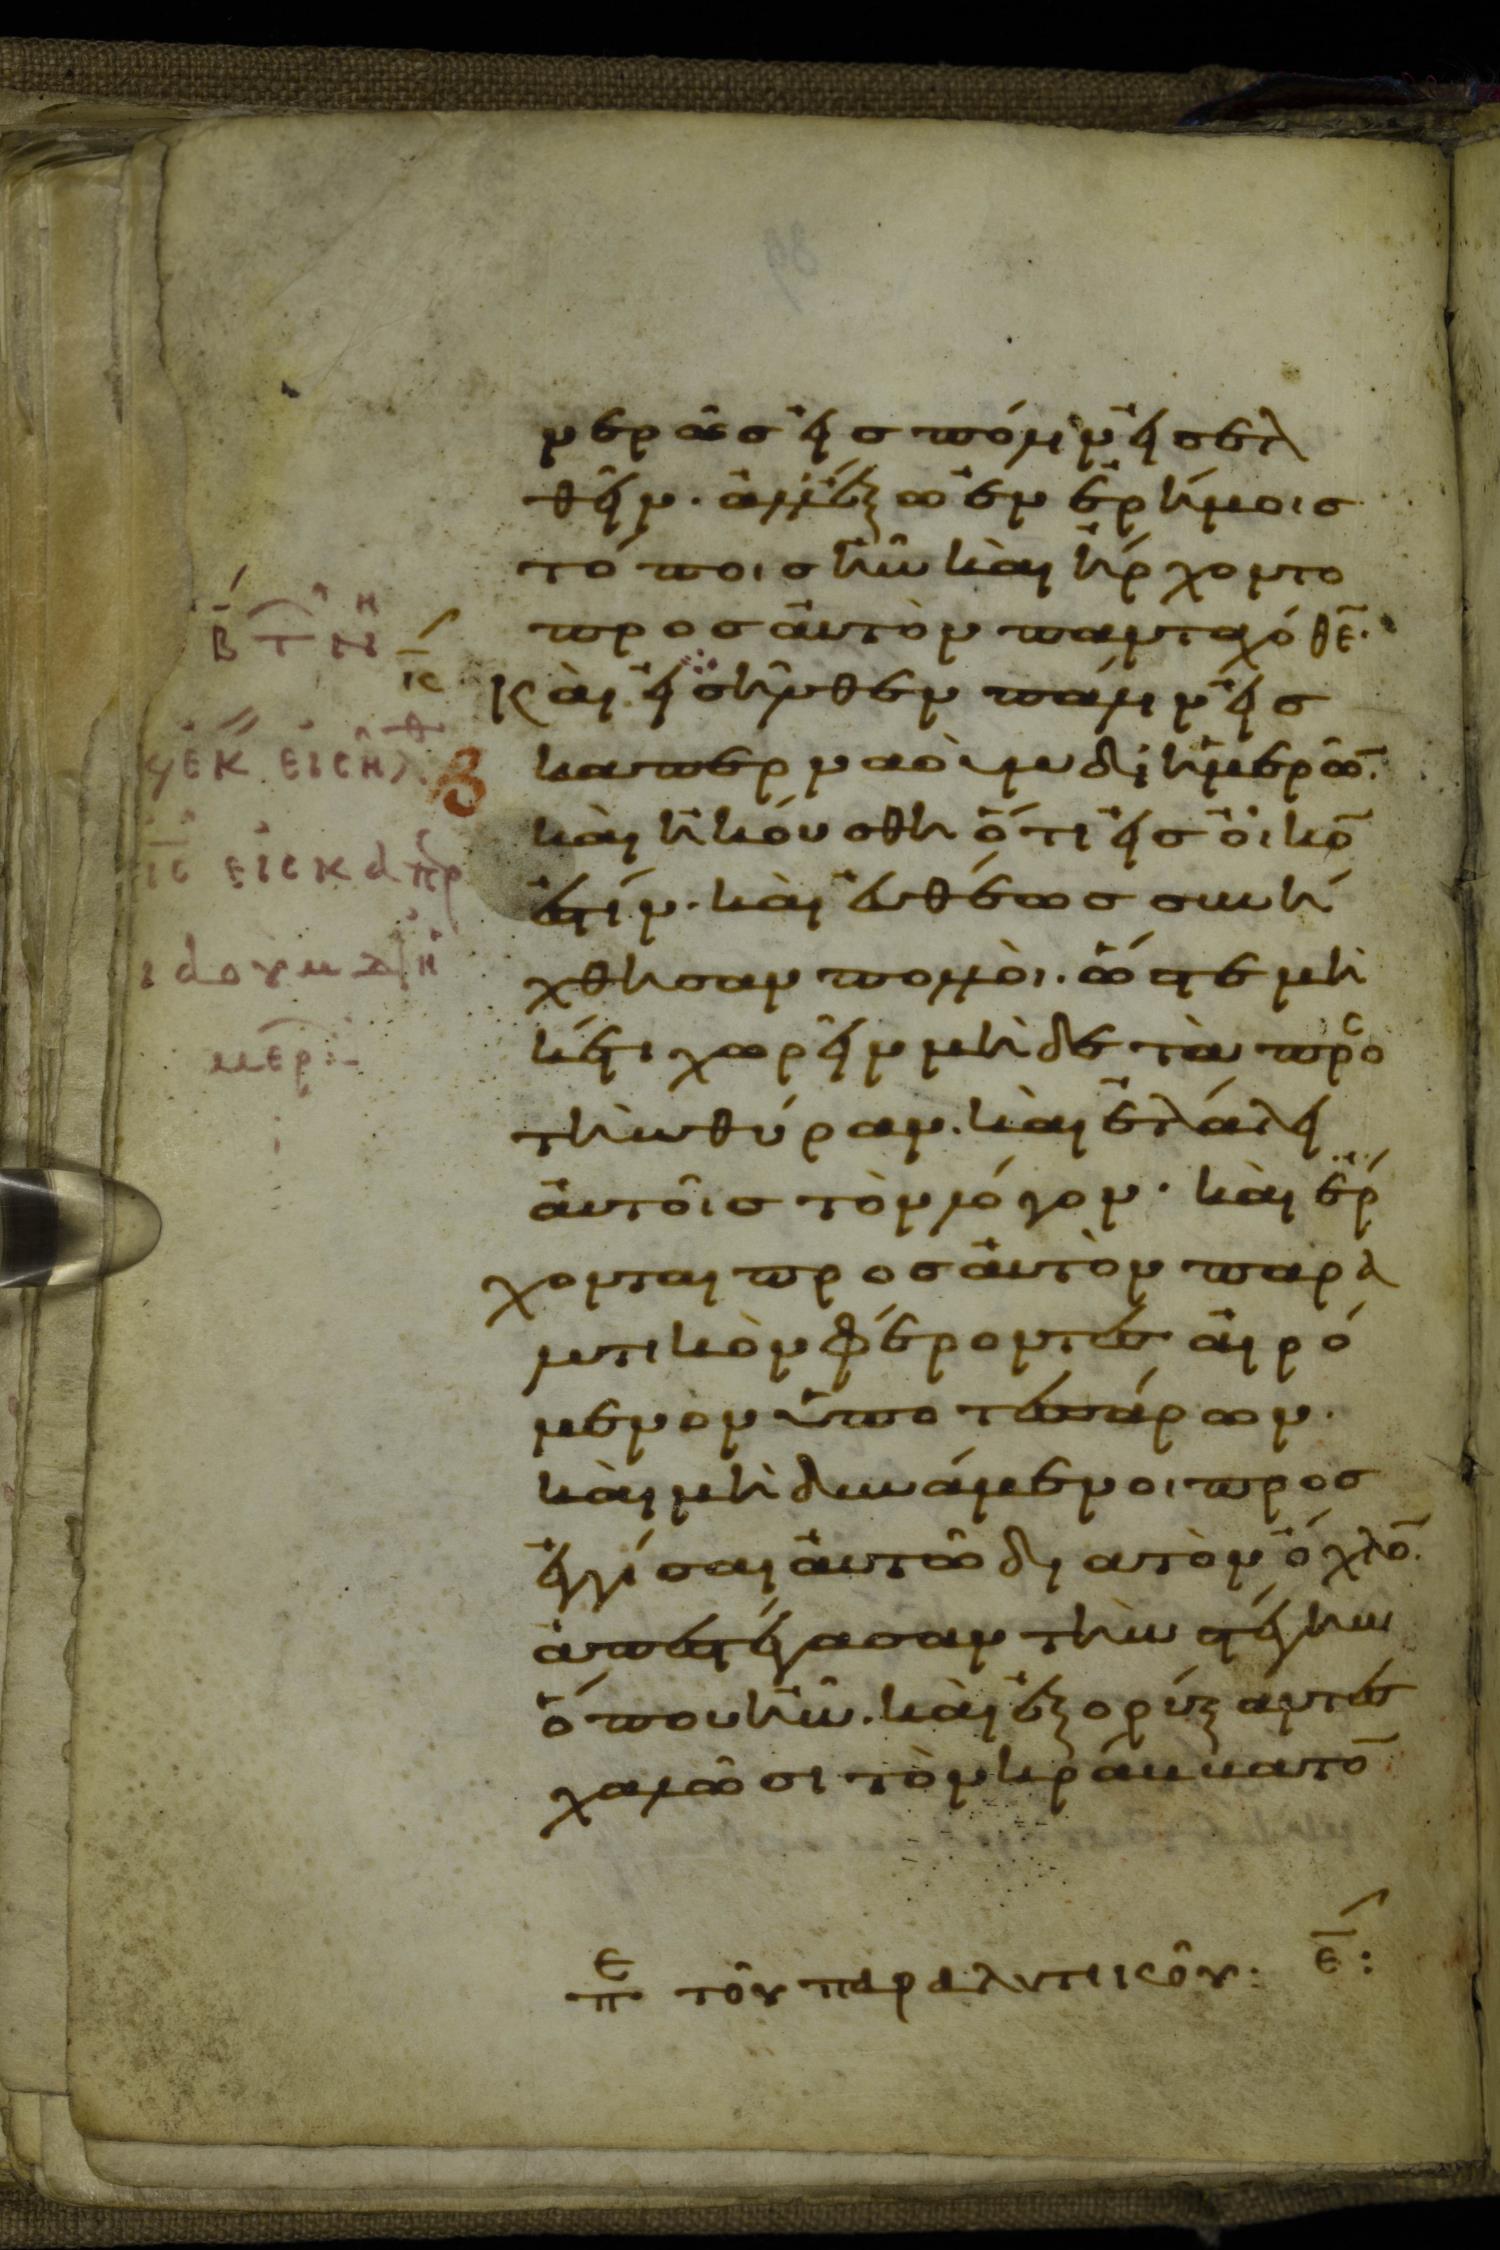 νερῶς εἰς πόλιν εἰσελ
θεῖν. ἀλλ' ἔξω ἐν ἐρήμοις
τόποις ἦν καὶ ἤρχοντο
προς αὐτὸν πανταχόθε̅.
Καὶ εἰσῆλθεν πάλιν εἰς
καπερναοὺμ δι ἡμερῶ̅.
καὶ ἠκούσθη ὅτι εἰς οἶκο̅
ἐστίν. καὶ εὐθέως συνή
χθησαν πολλοὶ. ὥστε μὴ
κέτι χωρεῖν μὴδὲ τὰ προς
τὴν θύραν. καὶ ἐλάλει
αὐτοῖς τὸν λόγον. καὶ ἔρ
χονται προς αὐτὸν παρα
λυτικὸν φέροντες αἰρό
μενον ὑπο τεσσάρων.
καὶ μὴ δυνάμενοι προσ
εγγίσαι αὐτῶ δια τὸν ὄχλο̅.
ἀπεστέγασαν τὴν στέγην
ὅπου ἦν. καὶ ἐξορύξαντες
χαλῶσι τὸν κράκκατο̅
Β̅ τ ν
ι̅ε
εἰσῆλθ
ι̅ς εἰς κα πρ
ναουμ δι ἡ
μερ:-
ε
π τοῦ παραλυτικοῦ: ε̅: